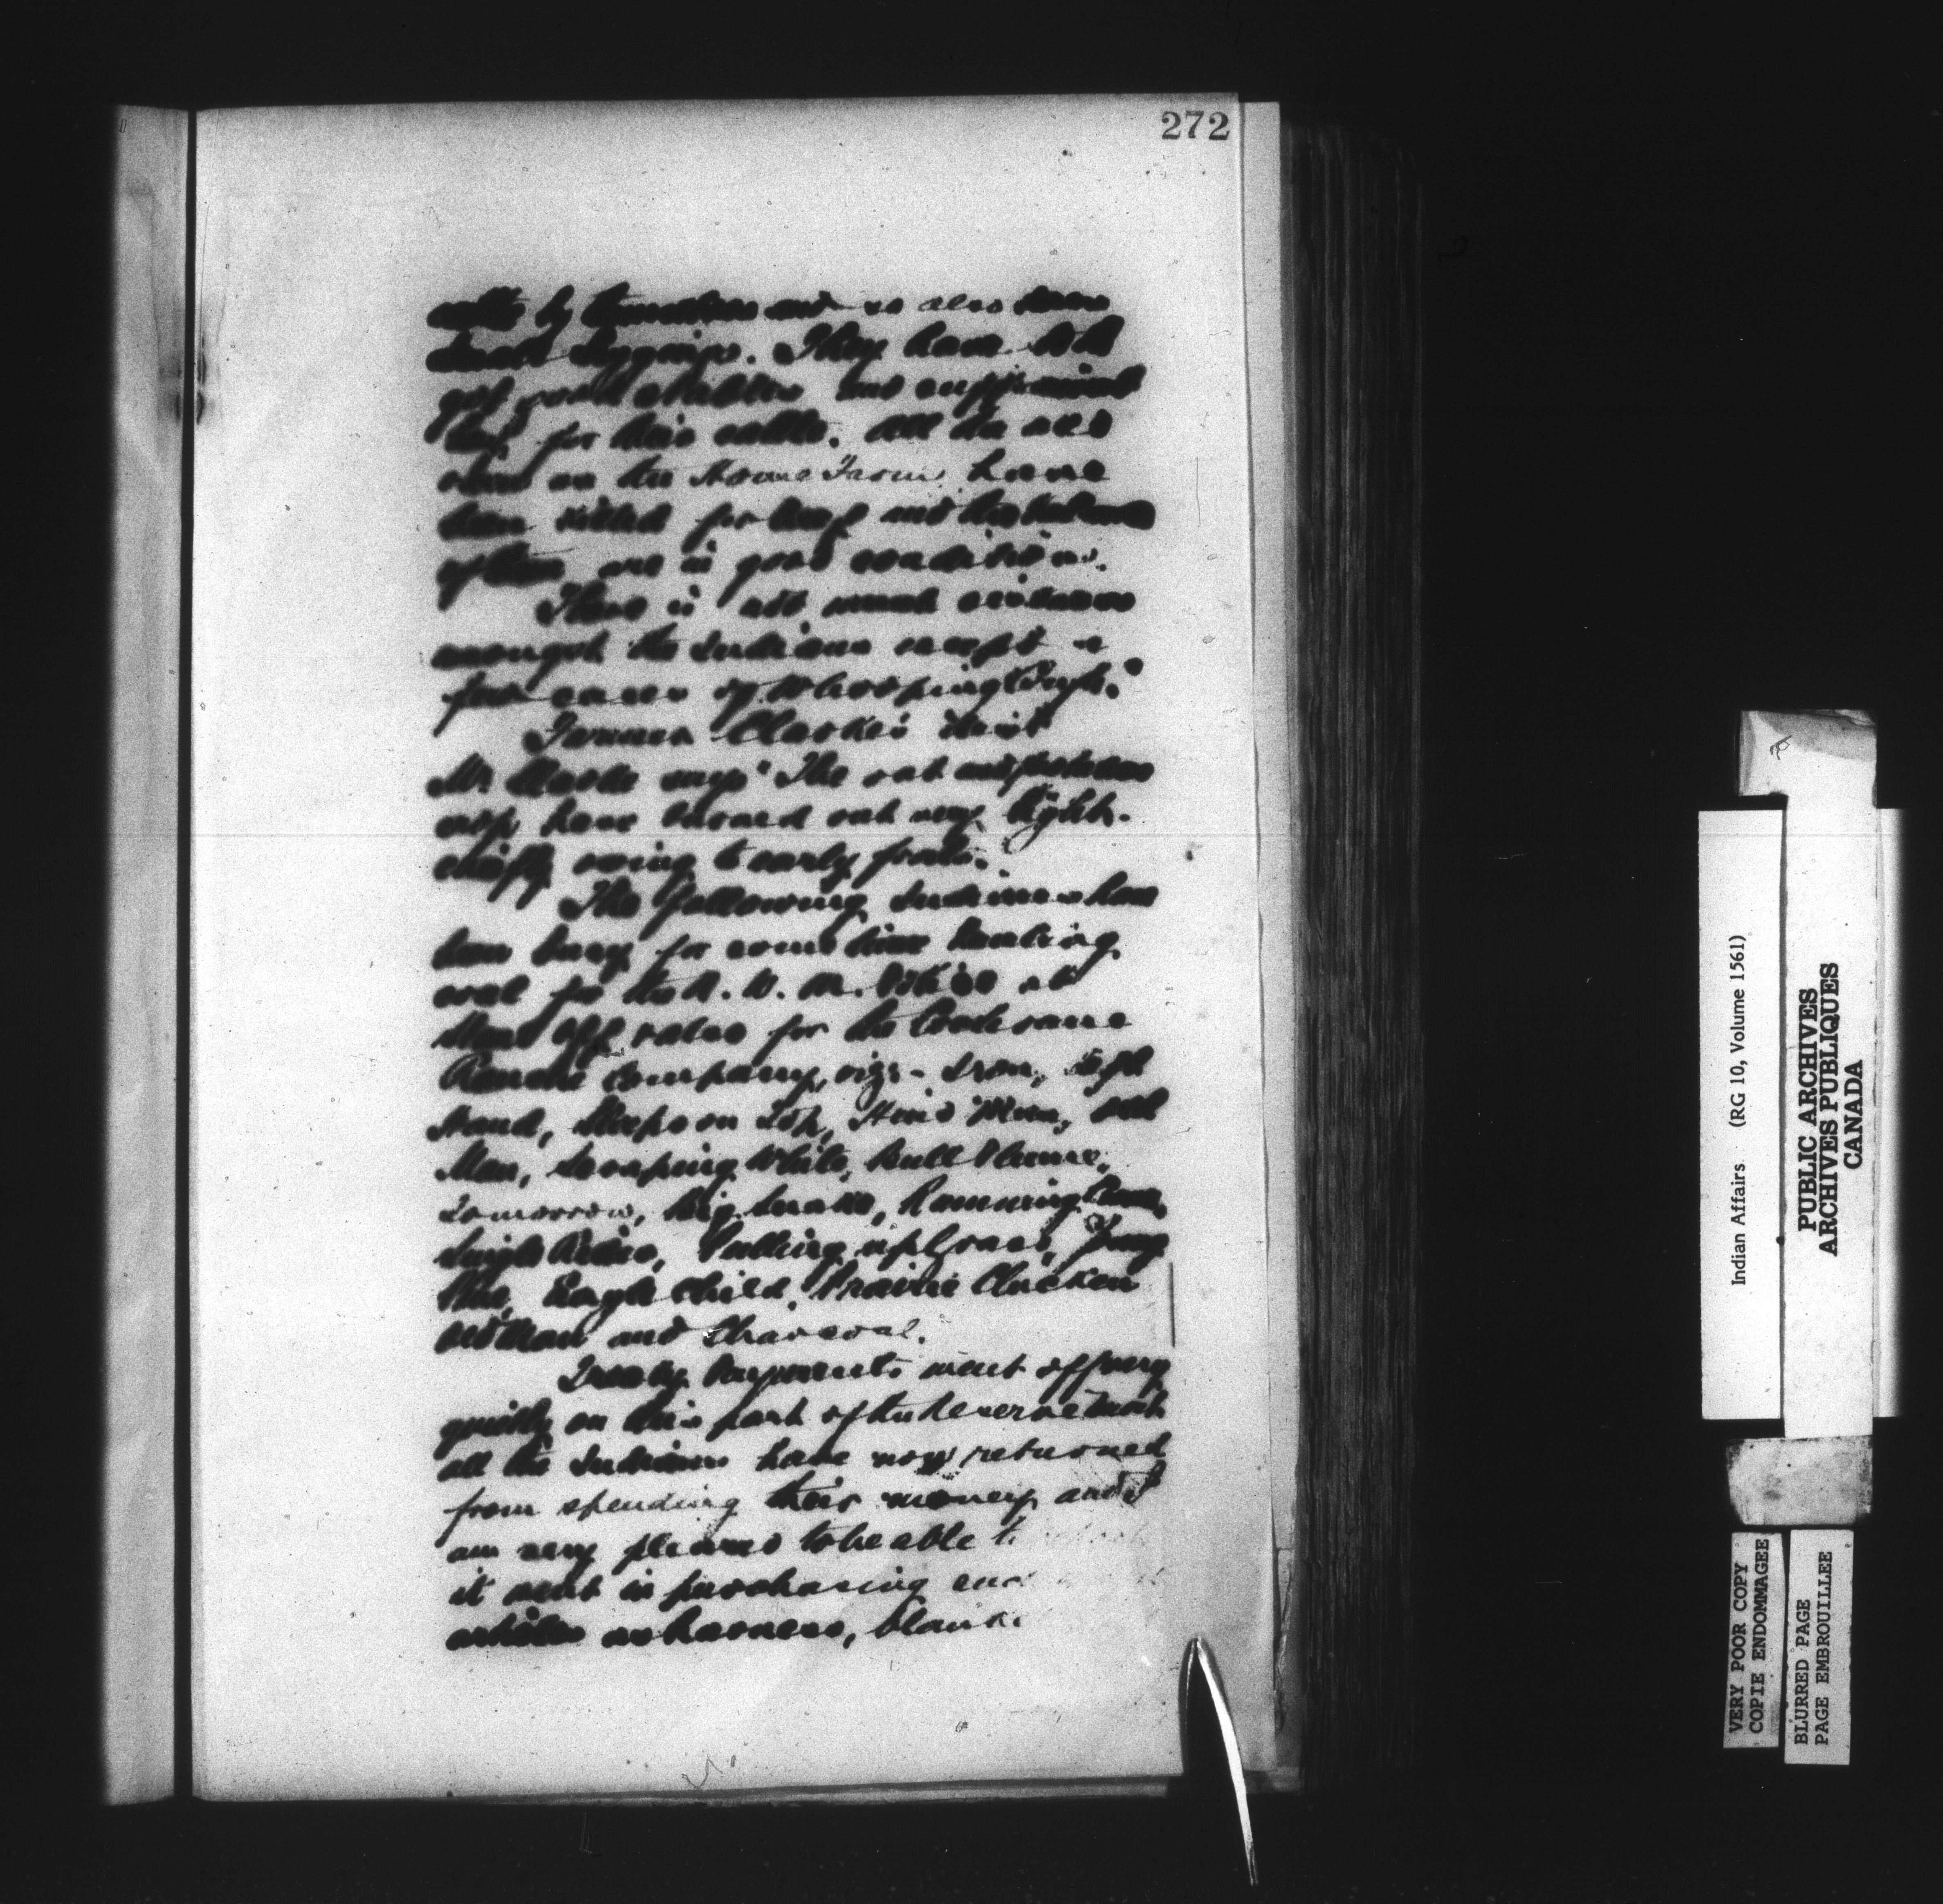 272
colts by and so also
Leggings. They have both
got good stables and
hay for their cattle. All the old
on the Home Farm have
been killed for beef and the balance
of them are in good condition.
There is not much sickness
amongst the Indians except a
few cases of Whooping Cough."
Farmer Clarke's
Mr Clarke says "The oat and potatoe
crop have turned out very light.
chiefly owing to early frosts.
The following Indians have
been busy for some time hauling
coal for the N. W. M. Police at
Stand Off also for the Cochrane
Ranche Company, viz:- Iron, Left
Hand, Sleeps on Top, Hind Man, Old
Man, Scraping White, Bull Plume,
Tomorrow, Big Snake, Running
Rider, Pulling up Grass, Young
Pine, Eagle Child, Prairie Chicken
Old Man and Charcoal.
Treaty Payments went off very
quietly on this part of the Reserve
all the Indians have now returned
from spending their money and I
am very pleased to be able to
it went in purchasing
articles as harness,
Indian Affairs. (RG 10, Volume 1561)
PUBLIC ARCHIVES
ARCHIVES PUBLIQUES
CANADA
VERY POOR COPY
COPIE ENDOMMAGEE
BLURRED PAGE
PAGE EMBROUILLEE